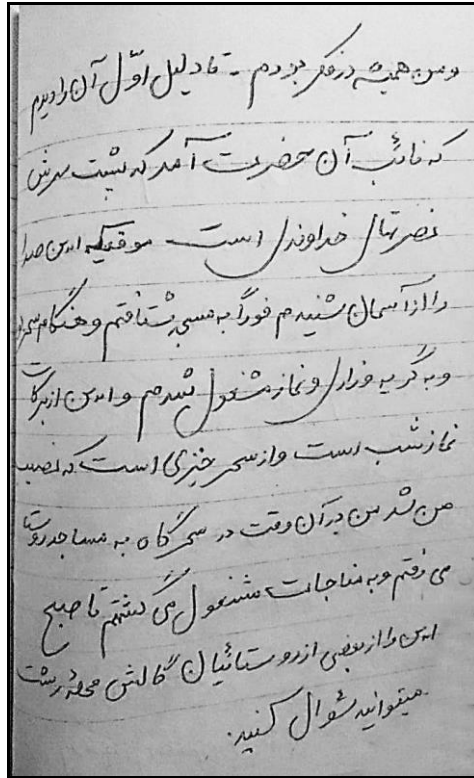 ومن همیشه در فکر بودم - تا دلیل اوّل آن را دیدم
که نائب آن حضرت آمد که پشت سرش
نصرتهای خداوندی است موقعیکه این صدا
را از آسمان شنیدم فوراً به مسجد شتافتم و هنگام سحر
و به گریه و زاری و نماز مشغول شدم و این از برکات
نماز شب است و از سحر خیزی است که نصیب
من شد من در آن وقت در سحرگاه به مساجد روستا
می رفتم و به مناجات مشغول می گشتم تا صبح
این را از بعضی از روستائیان گالش محله رشت
میتوانید سئوال کنید.